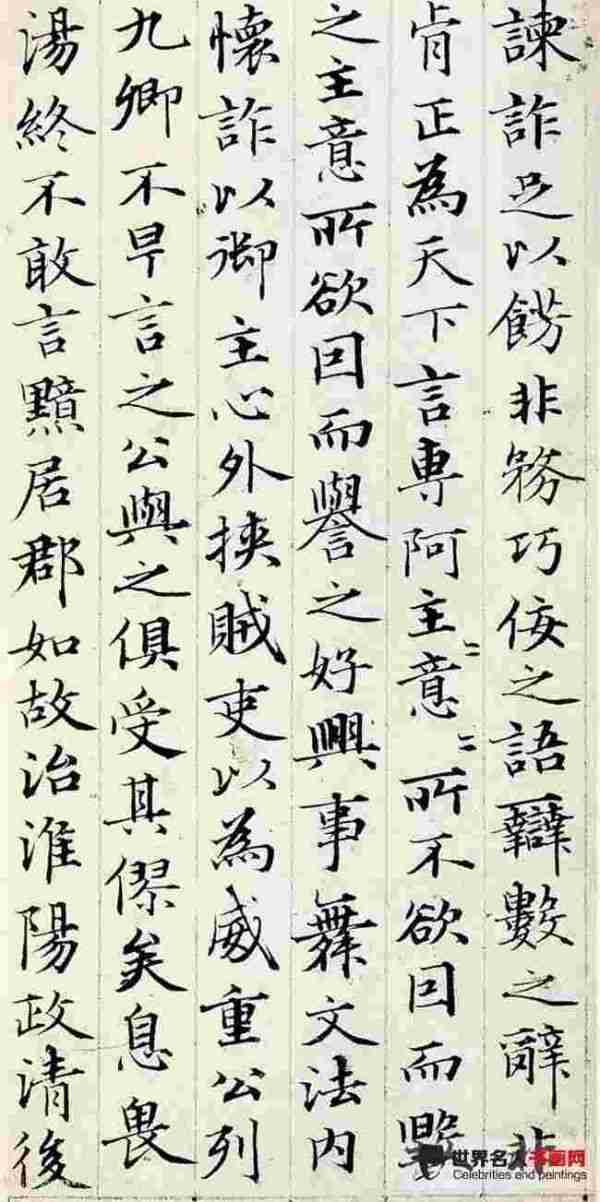 諫詐足以餝非務巧佞之語辯數之辭非
肯正為天下言專阿主〻意〻所不欲因而毀
之主意所欲因而譽之好興事舞文法內
懷詐以御主心外挾賊吏以為威重公列
九卿不早言之公與之俱受其僇矣息畏
湯終不敢言黯居郡如故治淮陽政清後
世界名人书画网
Celebrities end paintings